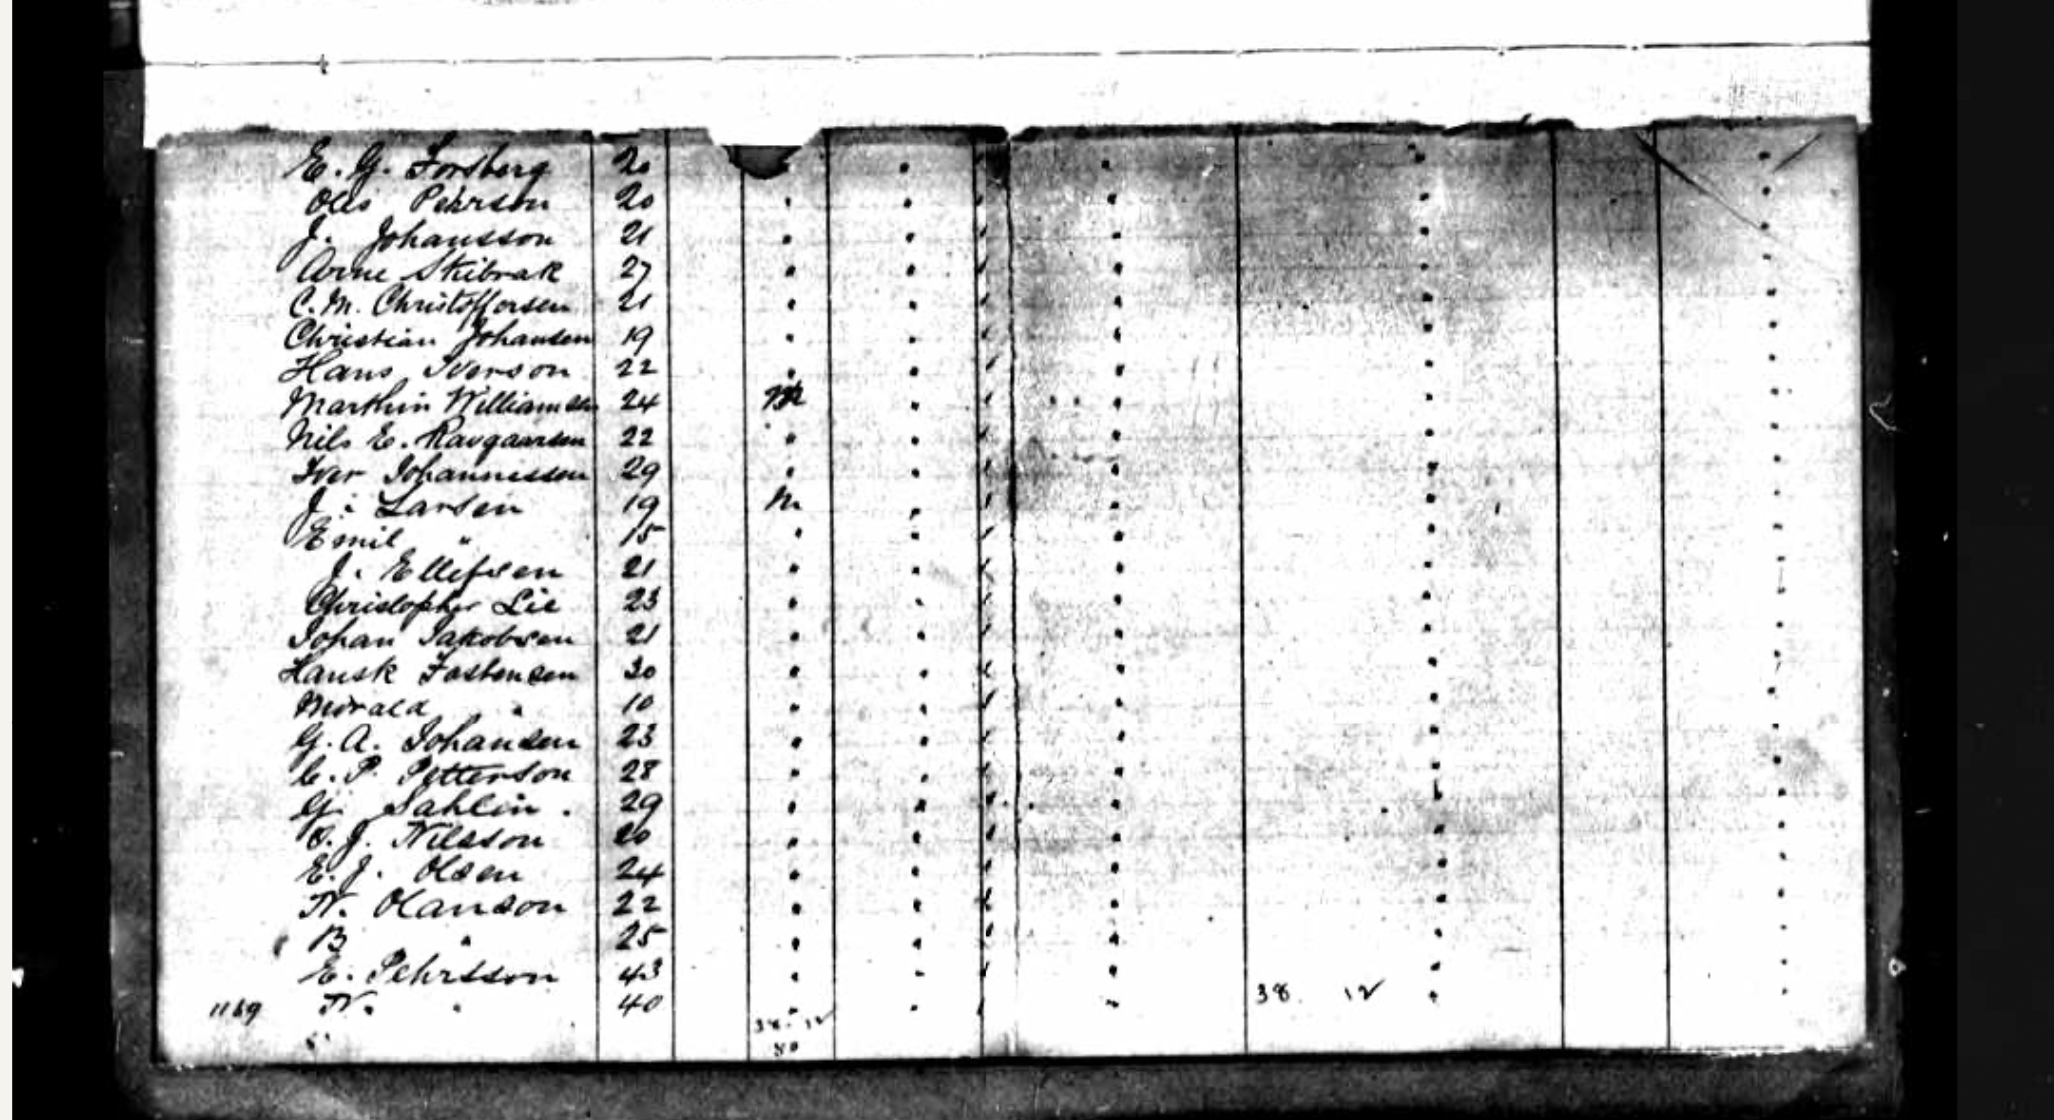 E. G. Forsberg 20
Olis Pehrson 20 " "
J. Johansson 21 " "
Arne Skibrak 27 " "
C. M. Christofforsen 21 " "
Christian Johansen 19 " "
Hans Iverson 22 " "
Marthin Williamsen 24 M "
Nils E. 22 " "
Iver Johannessen 29 " "
J. Larsen 19 M "
Emil " 15 " "
J. Ellefsen 21 " "
Christopher Lie 23 " "
Johan Jakobsen 21 " "
Hansk Fostensen 30 " "
" 10 " "
G. A. Johansen 23 " "
C. P. Petterson 28 " "
G. Sahlin. 29 " "
O. J. Nilsson 20 " "
E. J. Olsen 24 " "
N. Olanson 22 " "
B " 25 " "
E. Pehrsson 43 " "
1169 N. " 40 " " 38. 12
38. 12
80